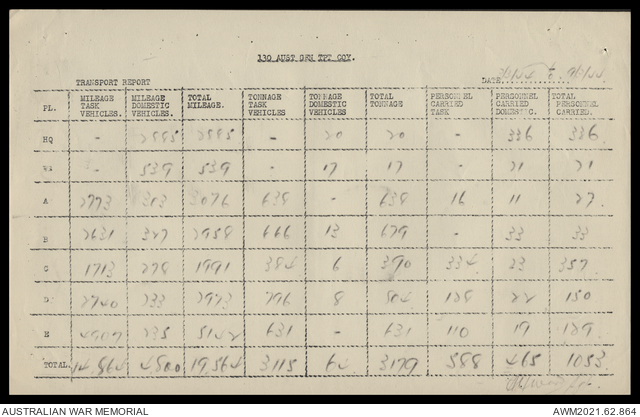 130 AUST GEN TPT COY.
TRANSPORT REPORT DATE
PL. MILEAGE TASK VEHICLES. MILEAGE DOMESTIC VEHICLES. TOTAL MILEAGE. TONNAGE TASK VEHICLES TONNAGE DOMESTIC VEHICLES TOTAL TONNAGE PERSONNEL CARRIED TASK PERSONNEL CARRIED DOMESTIC. TOTAL PERSONNEL CARRIED.
HQ - 2885 2885 - 20 20 - 336 336
- 539 539 - 17 17 - 21 21
A 2773 303 3076 638 - 638 16 11 27
B 2631 327 2958 666 13 679 - 33 33
C 1713 278 1991 384 6 390 334 23 357
D 2740 233 2973 796 8 804 128 22 150
E 4907 235 5142 631 - 631 110 19 129
TOTAL. 14,764 4800 19564 3115 64 3179 588 465 1053
AUSTRALIAN WAR MEMORIAL AWM2021.62.864